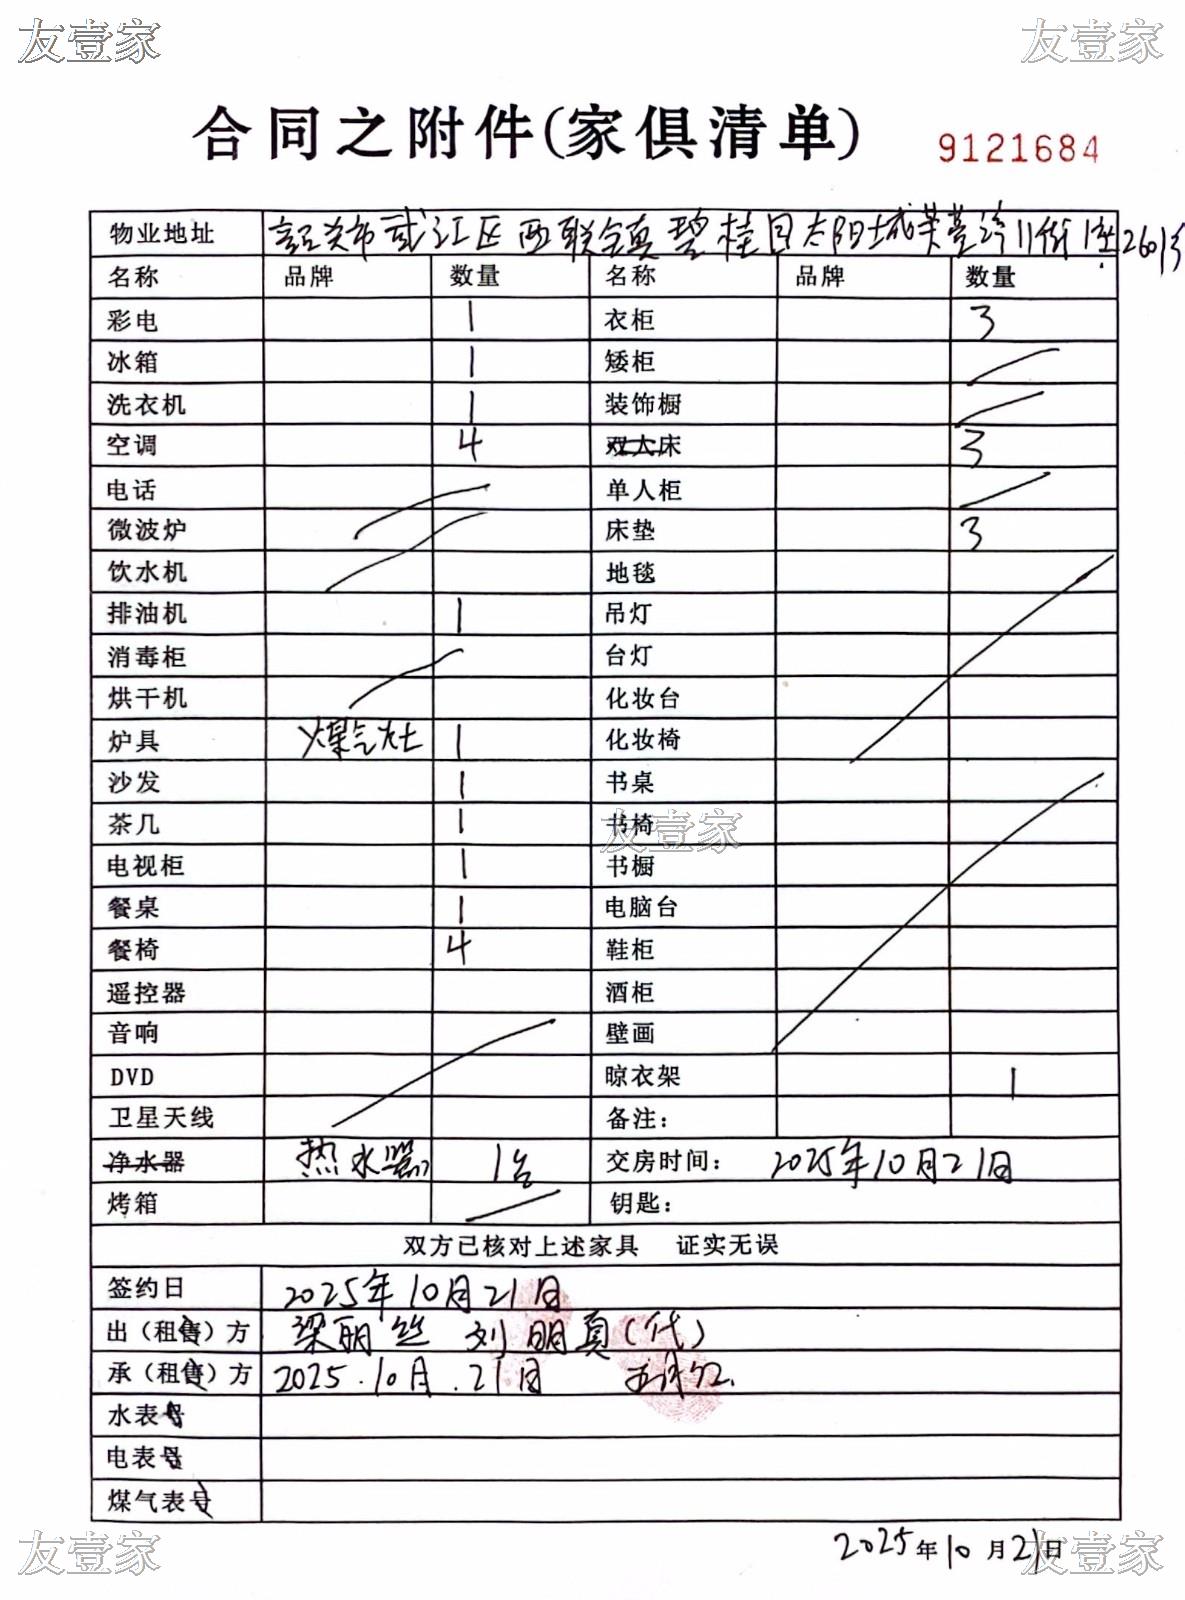 友壹家 友壹家
合同之附件(家俱清单) 9121684
物业地址 韶关市武江区西联镇碧桂园太阳城芙蓉湾11街1座2601房
名称 品牌 数量 名称 品牌 数量
彩电 1 衣柜 3
冰箱 1 矮柜
洗衣机 1 装饰橱
空调 4 双人床 3
电话 单人柜
微波炉 床垫 3
饮水机 地毯
排油机 1 吊灯
消毒柜 台灯
烘干机 化妆台
炉具 煤气灶 1 化妆椅
沙发 1 书桌
茶几 1 书椅 友壹家
电视柜 1 书橱
餐桌 1 电脑台
餐椅 4 鞋柜
遥控器 酒柜
音响 壁画
DVD 晾衣架 1
卫星天线 备注：
净水器 热水器 1台 交房时间： 2025年10月21日
烤箱 钥匙：
双方已核对上述家具 证实无误
签约日 2025年10月21日
出（租售）方 梁丽丝 刘明真(代)
承（租售）方 2025.10月.21日
水表号
电表号
煤气表号
2025年10月21日
友壹家 友壹家